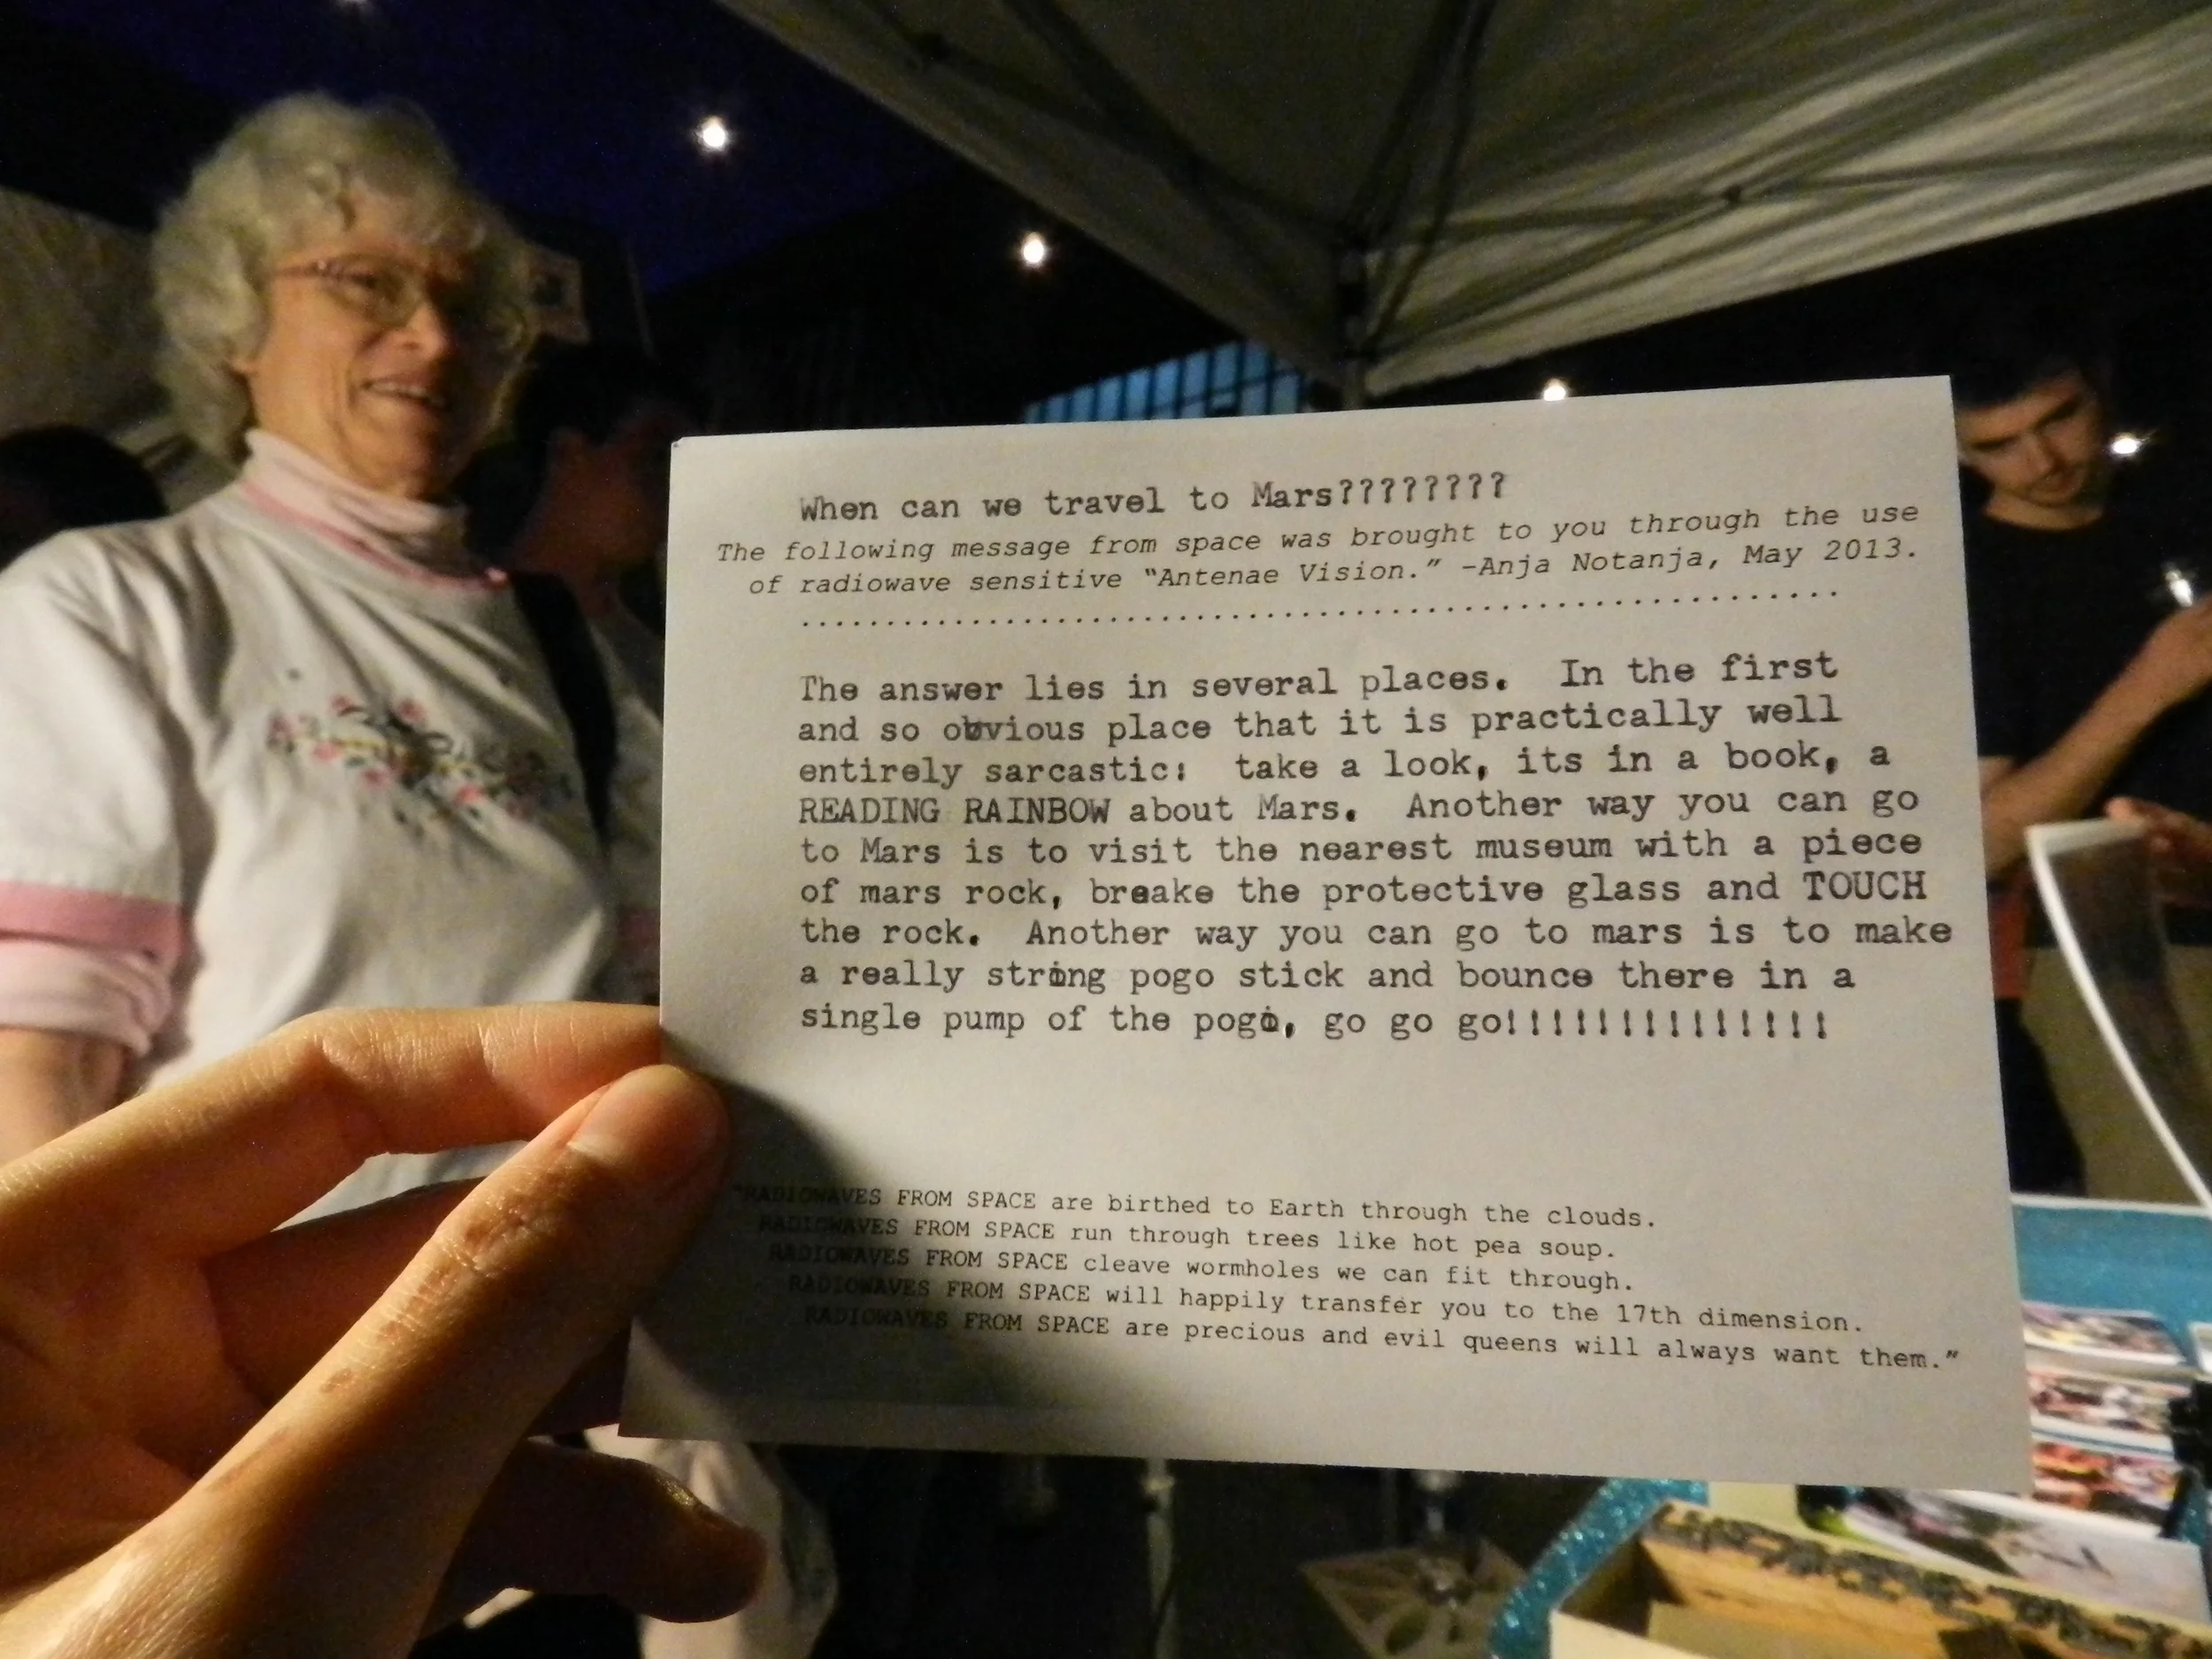 When can we travel to Mars????????
The following message from space was brought to you through the use
of radiowave sensitive “Antenae Vision.” –Anja Notanja, May 2013.
..............................................................
The answer lies in several places. In the first
and so obvious place that it is practically well
entirely sarcastic: take a look, its in a book, a
READING RAINBOW about Mars. Another way you can go
to Mars is to visit the nearest museum with a piece
of mars rock, breake the protective glass and TOUCH
the rock. Another way you can go to mars is to make
a really string pogo stick and bounce there in a
single pump of the pogo, go go go!!!!!!!!!!!!!!!
"RADIOWAVES FROM SPACE are birthed to Earth through the clouds.
RADIOWAVES FROM SPACE run through trees like hot pea soup.
RADIOWAVES FROM SPACE cleave wormholes we can fit through.
RADIOWAVES FROM SPACE will happily transfer you to the 17th dimension.
RADIOWAVES FROM SPACE are precious and evil queens will always want them.”